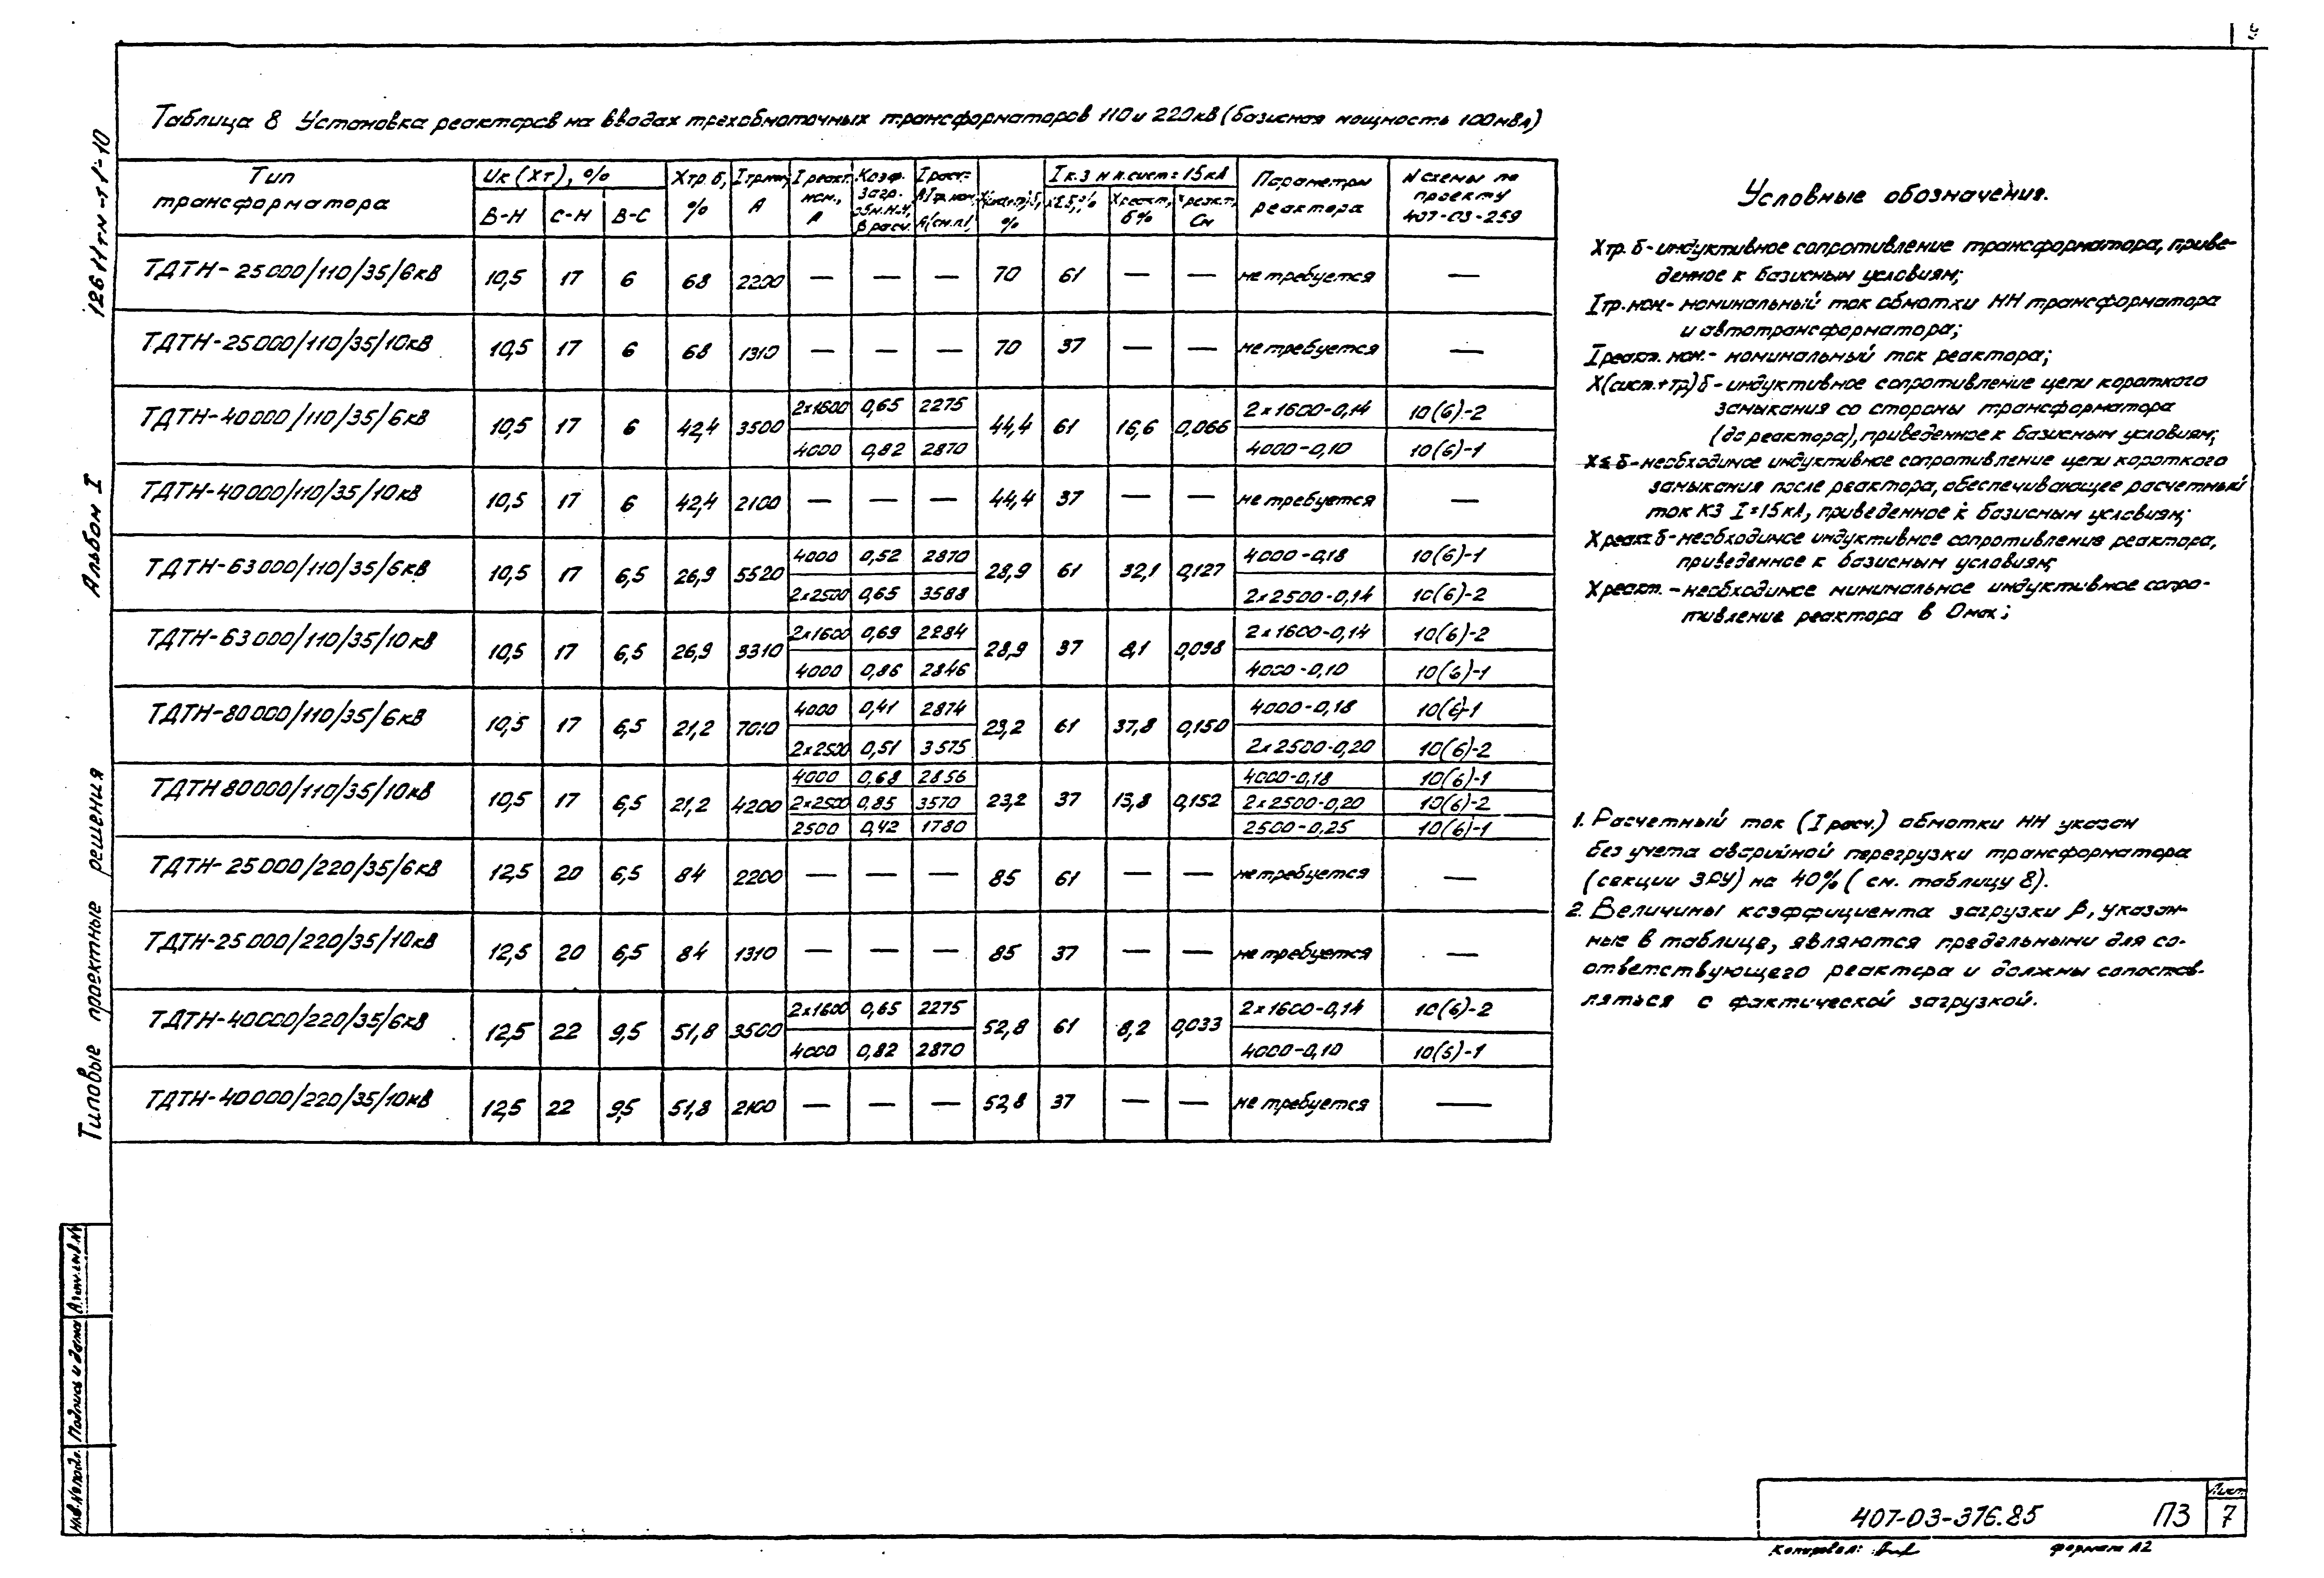 9
Таблица 8 Установка реакторов на вводах трехобмоточных трансформаторов 110 и 220кВ (базисная мощность 100мВА)
Тип трансформатора | Uк (Xт), % | Xтр. б, % | Iтр.ном, А | I реакт. ном., А | Коэф. загр. обм. Н.Н, β расч. | I расч= | X(сист+тр)б, % | I к.з н п.сист = 15кА | Параметры реактора | N схемы по проекту 407-03-259
В-Н | С-Н | В-С | XΣб,% | Xреакт, б% | Xреакт, Ом
ТДТН-25000/110/35/6кВ | 10,5 | 17 | 6 | 68 | 2200 | — | — | — | 70 | 61 | — | — | не требуется | —
ТДТН-25000/110/35/10кВ | 10,5 | 17 | 6 | 68 | 1310 | — | — | — | 70 | 37 | — | — | не требуется | —
ТДТН-40000/110/35/6кВ | 10,5 | 17 | 6 | 42,4 | 3500 | 2х1600 | 0,65 | 2275 | 44,4 | 61 | 16,6 | 0,066 | 2х1600-0,14 | 10(6)-2
4000 | 0,82 | 2870 | 4000-0,10 | 10(6)-1
ТДТН-40000/110/35/10кВ | 10,5 | 17 | 6 | 42,4 | 2100 | — | — | — | 44,4 | 37 | — | — | не требуется | —
ТДТН-63000/110/35/6кВ | 10,5 | 17 | 6,5 | 26,9 | 5520 | 4000 | 0,52 | 2870 | 28,9 | 61 | 32,1 | 0,127 | 4000-0,18 | 10(6)-1
2х2500 | 0,65 | 3588 | 2х2500-0,14 | 10(6)-2
ТДТН-63000/110/35/10кВ | 10,5 | 17 | 6,5 | 26,9 | 3310 | 2х1600 | 0,69 | 2284 | 28,9 | 37 | 8,1 | 0,098 | 2х1600-0,14 | 10(6)-2
4000 | 0,86 | 2846 | 4000-0,10 | 10(6)-1
ТДТН-80000/110/35/6кВ | 10,5 | 17 | 6,5 | 21,2 | 7010 | 4000 | 0,41 | 2874 | 23,2 | 61 | 37,8 | 0,150 | 4000-0,18 | 10(6)-1
2х2500 | 0,51 | 3575 | 2х2500-0,20 | 10(6)-2
ТДТН 80000/110/35/10кВ | 10,5 | 17 | 6,5 | 21,2 | 4200 | 4000 | 0,68 | 2856 | 23,2 | 37 | 13,8 | 0,152 | 4000-0,18 | 10(6)-1
2х2500 | 0,85 | 3570 | 2х2500-0,20 | 10(6)-2
2500 | 0,42 | 1780 | 2500-0,25 | 10(6)-1
ТДТН-25000/220/35/6кВ | 12,5 | 20 | 6,5 | 84 | 2200 | — | — | — | 85 | 61 | — | — | не требуется | —
ТДТН-25000/220/35/10кВ | 12,5 | 20 | 6,5 | 84 | 1310 | — | — | — | 85 | 37 | — | — | не требуется | —
ТДТН-40000/220/35/6кВ | 12,5 | 22 | 9,5 | 51,8 | 3500 | 2х1600 | 0,65 | 2275 | 52,8 | 61 | 8,2 | 0,033 | 2х1600-0,14 | 10(6)-2
4000 | 0,82 | 2870 | 4000-0,10 | 10(6)-1
ТДТН-40000/220/35/10кВ | 12,5 | 22 | 9,5 | 51,8 | 2100 | — | — | — | 52,8 | 37 | — | — | не требуется | —
Условные обозначения.
Xтр. б-индуктивное сопротивление трансформатора, приве-
денное к базисным условиям;
Iтр.ном.-номинальный ток обмотки НН трансформатора
и автотрансформатора;
Iреакт. ном.- номинальный ток реактора;
X(сист.+тр)б-индуктивное сопротивление цепи короткого
замыкания со стороны трансформатора
(до реактора), приведенное к базисным условиям;
XΣ б-необходимое индуктивное сопротивление цепи короткого
замыкания после реактора, обеспечивающее расчетный
ток КЗ I=15кА, приведенное к базисным условиям;
Xреакт б-необходимое индуктивное сопротивление реактора,
приведенное к базисным условиям;
Xреакт. -необходимое минимальное индуктивное сопро-
тивление реактора в Омах;
1. Расчетный ток (I расч.) обмотки НН указан
без учета аварийной перегрузки трансформатора
(секции ЗРУ) на 40% (см. таблицу 8).
2. Величины коэффициента загрузки β, указан-
ные в таблице, являются предельными для со-
ответствующего реактора и должны сопостав-
ляться с фактической загрузкой.
Типовые проектные решения Альбом I 12611тм-т1-10
Инв.№подл. Подпись и дата Взам.инв.№
407-03-376.85 ПЗ
Лист
7
Копировал: Формат А2